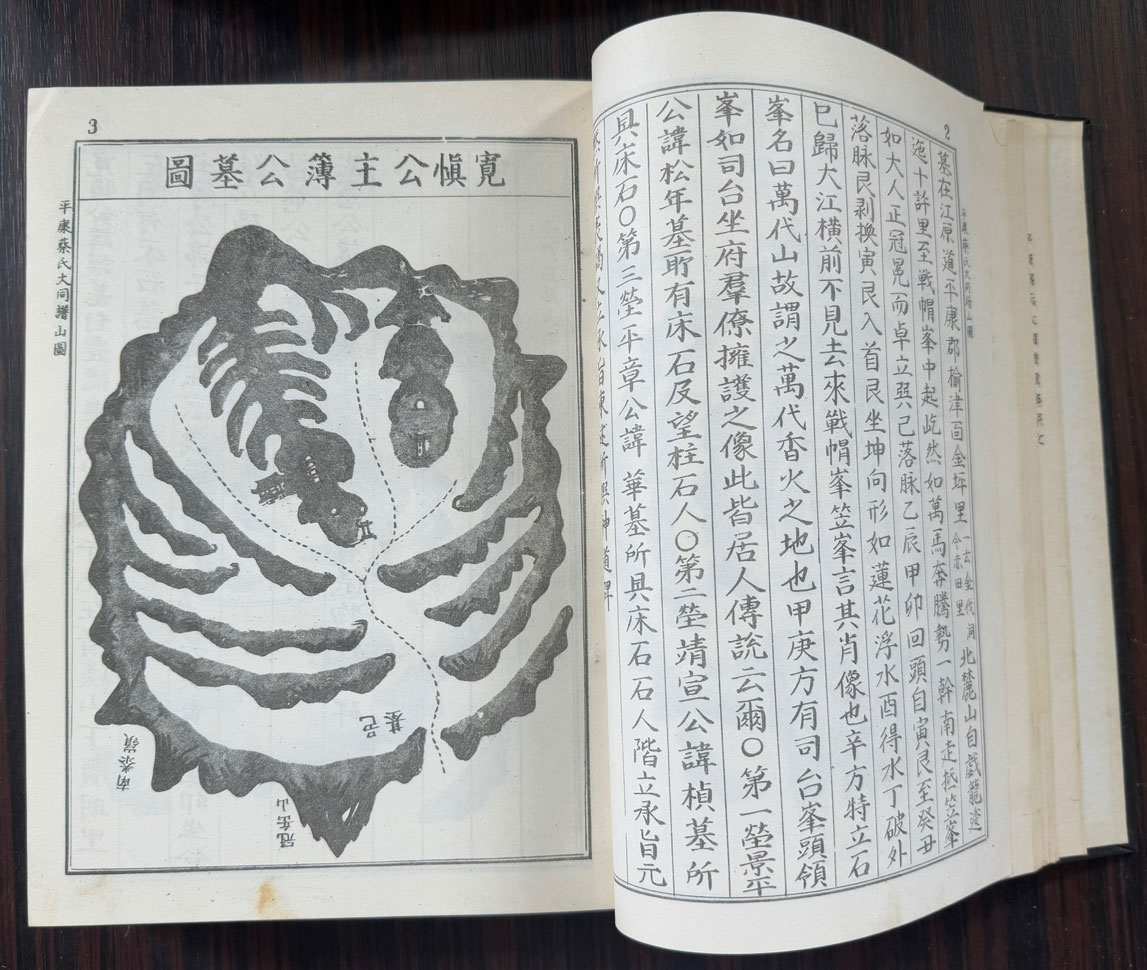 2
平康蔡氏大同譜山圖
墓在江原道平康郡榆津面金坪里 一云金代洞 今赤田里 北麓山自戱龍逆
迤十許里至戰帽峯中起屹然如萬馬奔騰勢一幹南走抵笠峯
如大人正冠冕而卓立巽己落脉乙辰甲卯回頭自寅艮至癸丑
落脉艮剥換寅艮入首艮坐坤向形如蓮花浮水酉得水丁破外
已歸大江橫前不見去來戰帽峯笠峯言其肖像也辛方特立石
峯名曰萬代山故謂之萬代香火之地也甲庚方有司台峯頭領
峯如司台坐府羣僚擁護之像此皆居人傳說云爾〇第一塋景平
公諱松年墓所有床石及望柱石人〇第二塋靖宣公諱楨墓所
具床石〇第三塋平章公諱 華墓所具床石石人階立承旨元
3
寬愼公主簿公墓圖
平康蔡氏大同譜山圖
墓邑
南泰嶺
冠岳山